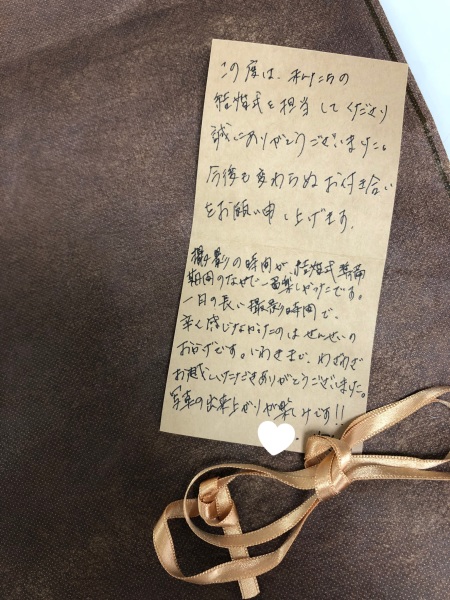 この度は、私たちの
結婚式を担当してくださり
誠にありがとうございました。
今後も変わらぬお付き合い
をお願い申し上げます。
撮影の時間が、結婚式準備
期間のなかで一番楽しかったです。
一日の長い撮影時間で、
辛く感じなかったのはせんせいの
おかげです。いわきまで、わざわざ
お越しいただきありがとうございました。
写真の出来上がりが楽しみです!!